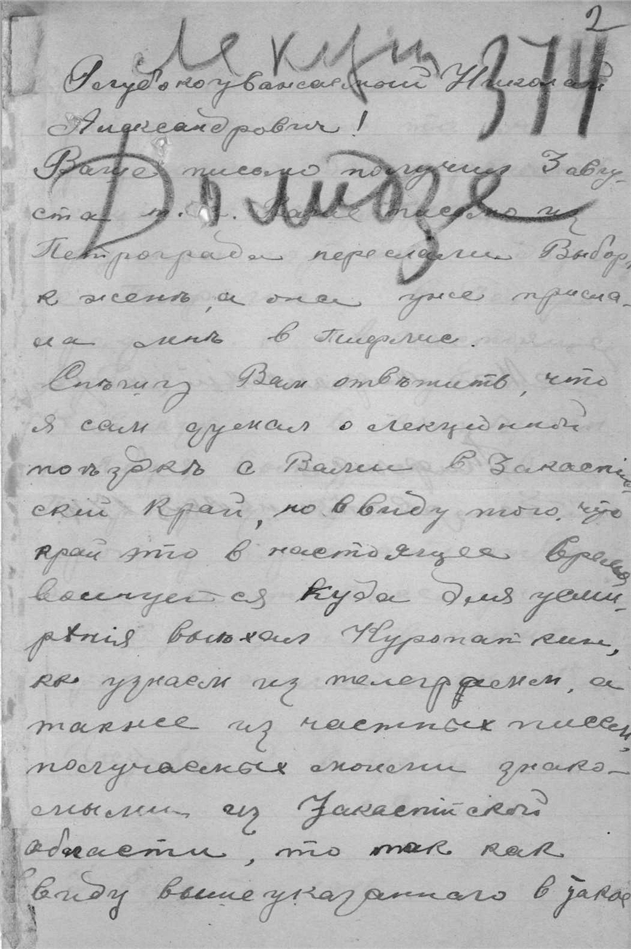 2
Лекции
374
Глубокоуважаемый Николай
Александрович!
Ваше письмо получил 3 авгу-
ста т. г. Ваше письмо из
Долидзе
Петрограда переслали Выбор,
к женѣ, а она уже присла-
ла мнѣ в Тифлис.
Спѣшу Вам отвѣтить, что
я сам думал о лекціонной
поѣздкѣ с Вами в Закаспій-
скій Край, но ввиду того, что
край это в настоящее время
волнуется куда для усми-
рѣнія выѣхал Куропаткин,
кк узнаем из телеграмм, а
также из частных писем,
получаемых моими знако-
мыми из Закаспійской
области, то так как
виду вышеуказаннаго в такое